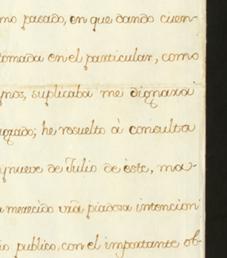 mo pasado, en que dando cuen-
tomada en el particular, como
nos, suplicaba me dignara
agrado; he resuelto à consulta
nueve de Julio de este, ma-
a merecido vrã piadosa intencion
io publico, con el importante ob-